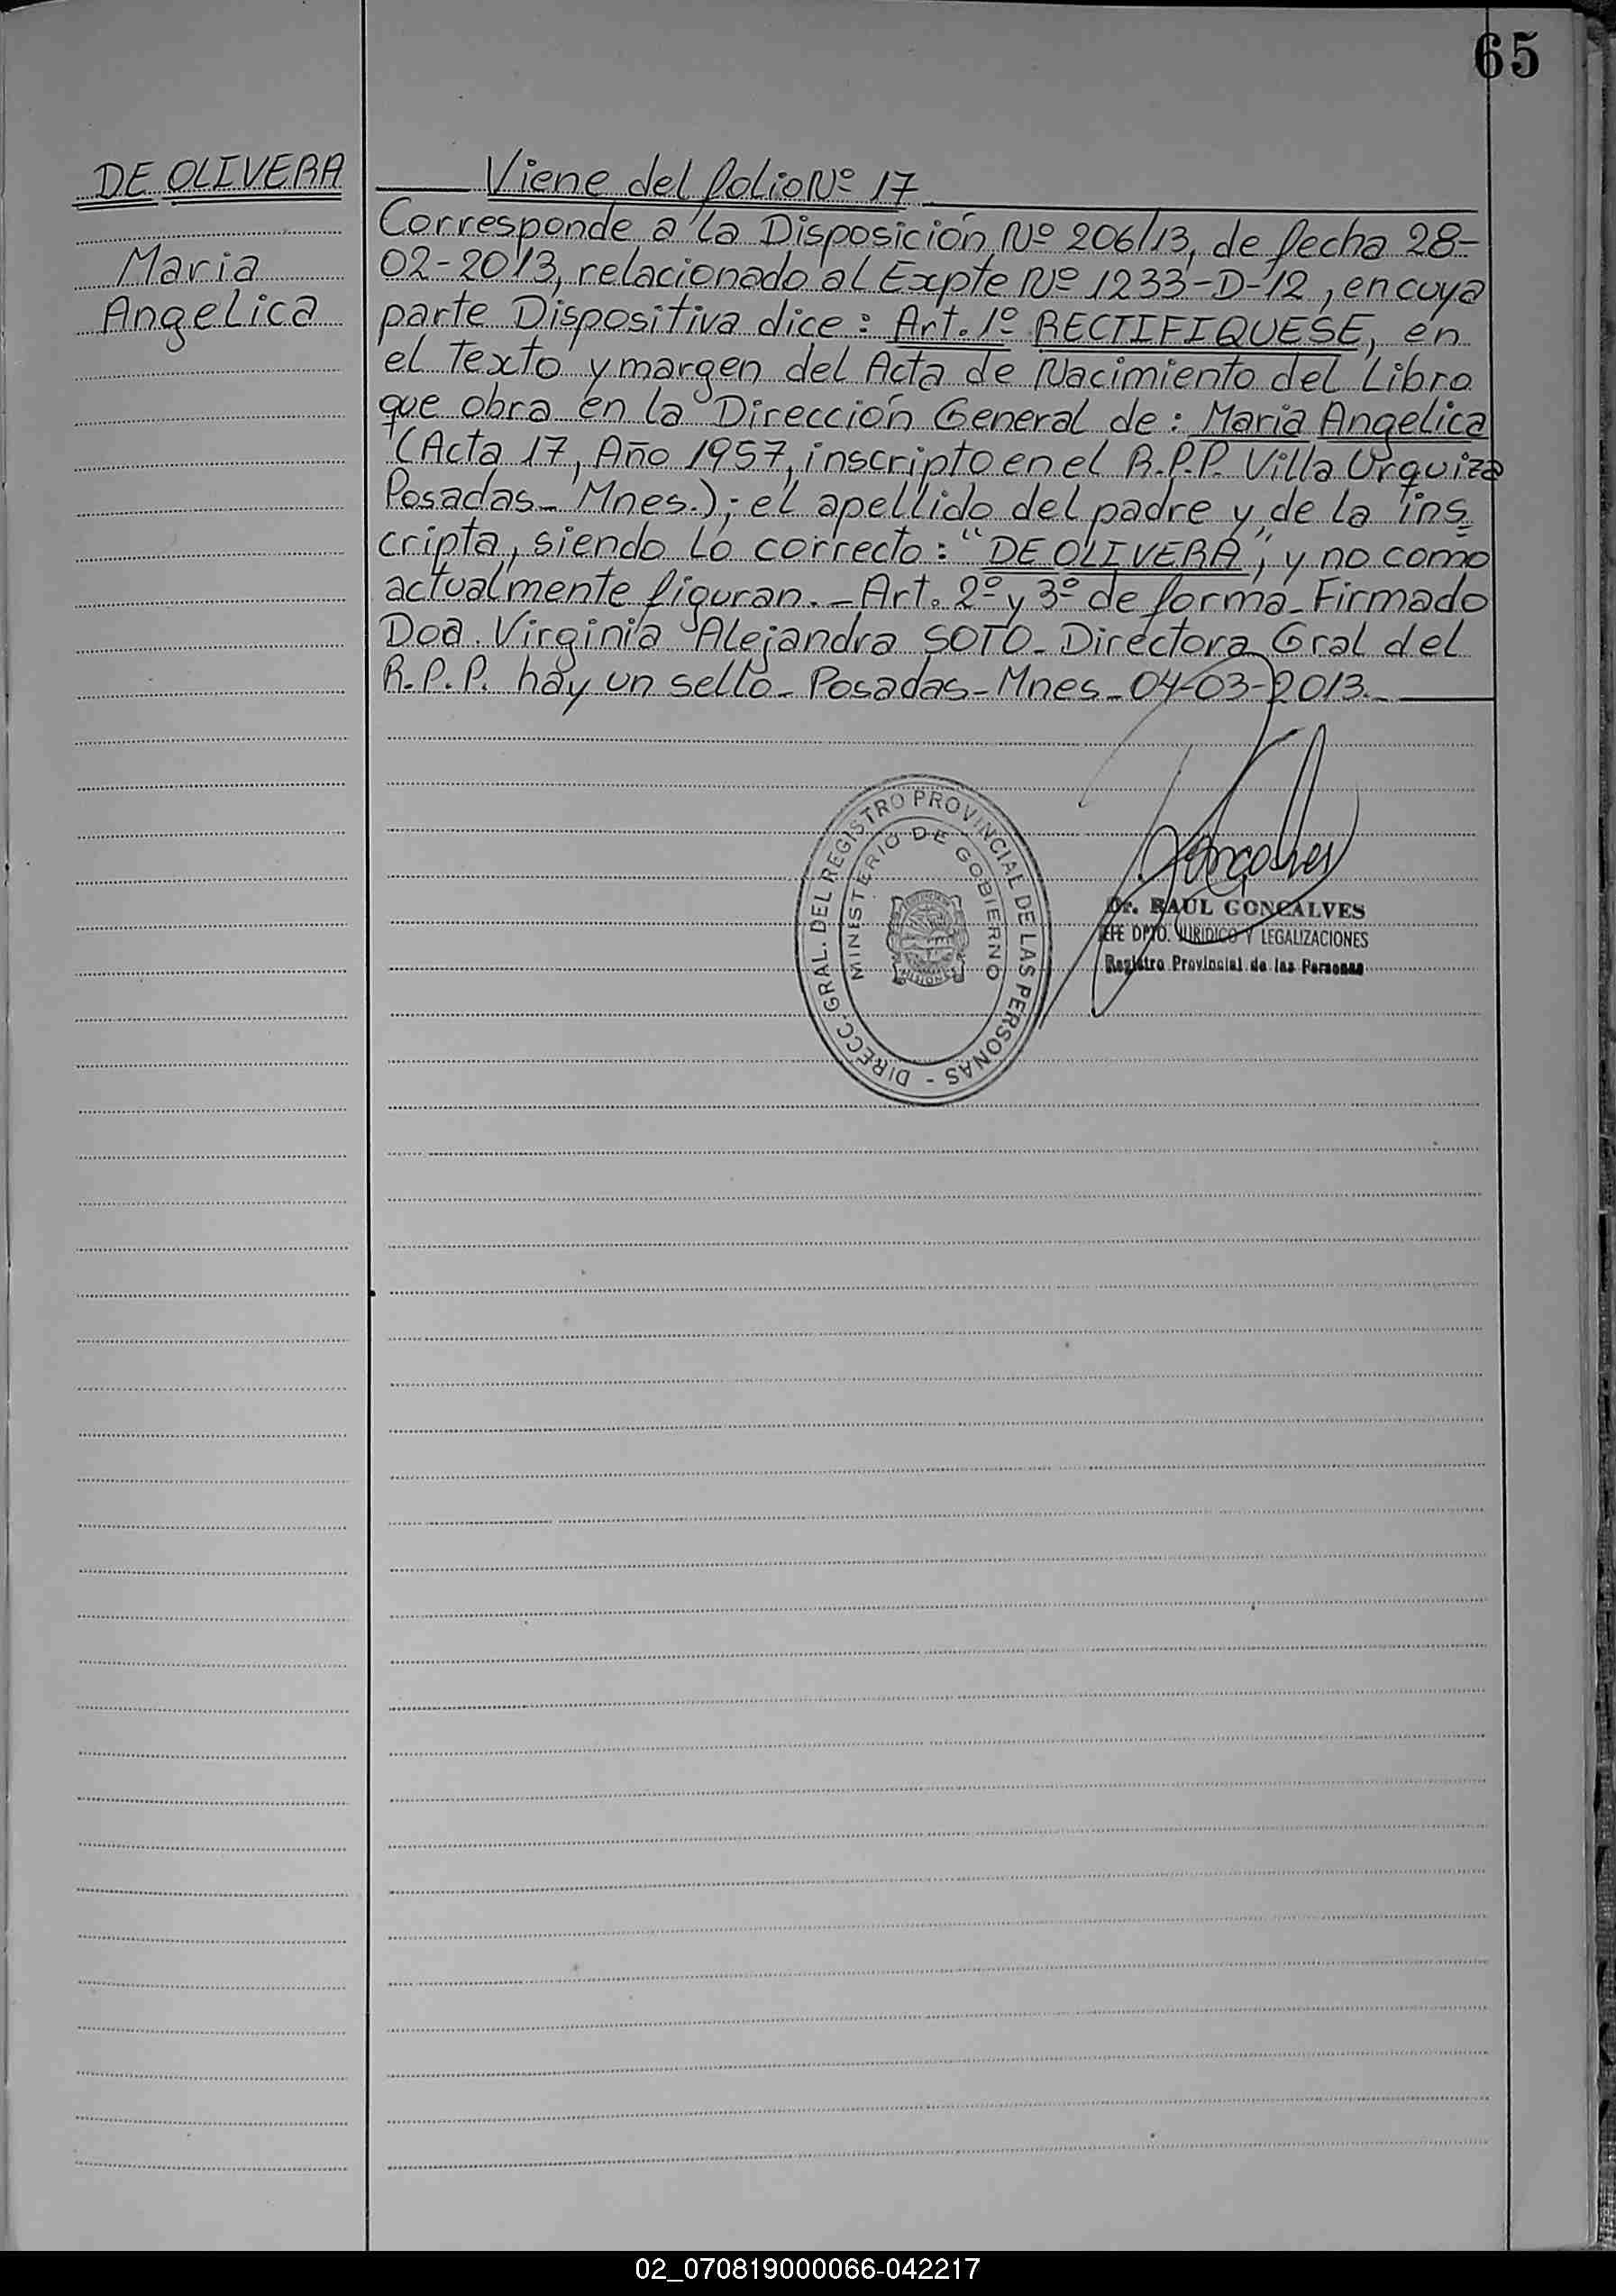 65
DE OLIVERA
Maria
Angelica
Viene del folio Nº 17
Corresponde a la Disposición Nº 206/13, de fecha 28-
02-2013, relacionado al Expte Nº 1233-D-12, en cuya
parte Dispositiva dice: Art. 1º RECTIFIQUESE, en
el Texto y margen del Acta de Nacimiento del Libro
que obra en la Dirección General de: Maria Angelica
(Acta 17, Año 1957, inscripto en el R.P.P. Villa Urquiza
Posadas_ Mnes.); el apellido del padre y de la ins=
cripta, siendo Lo correcto: "DE OLIVERA", y no como
actualmente figuran._ Art. 2º y 3º de forma_ Firmado
Doa. Virginia Alejandra SOTO_ Directora Gral del
R.P.P. hay un sello_ Posadas_ Mnes_ 04-03-2013._
DIRECC. GRAL. DEL REGISTRO PROVINCIAL DE LAS PERSONAS -
MINISTERIO DE GOBIERNO
MISIONES
Dr. RAUL GONCALVES
JEFE DPTO. JURIDICO Y LEGALIZACIONES
Registro Provincial de las Personas
02_070819000066-042217